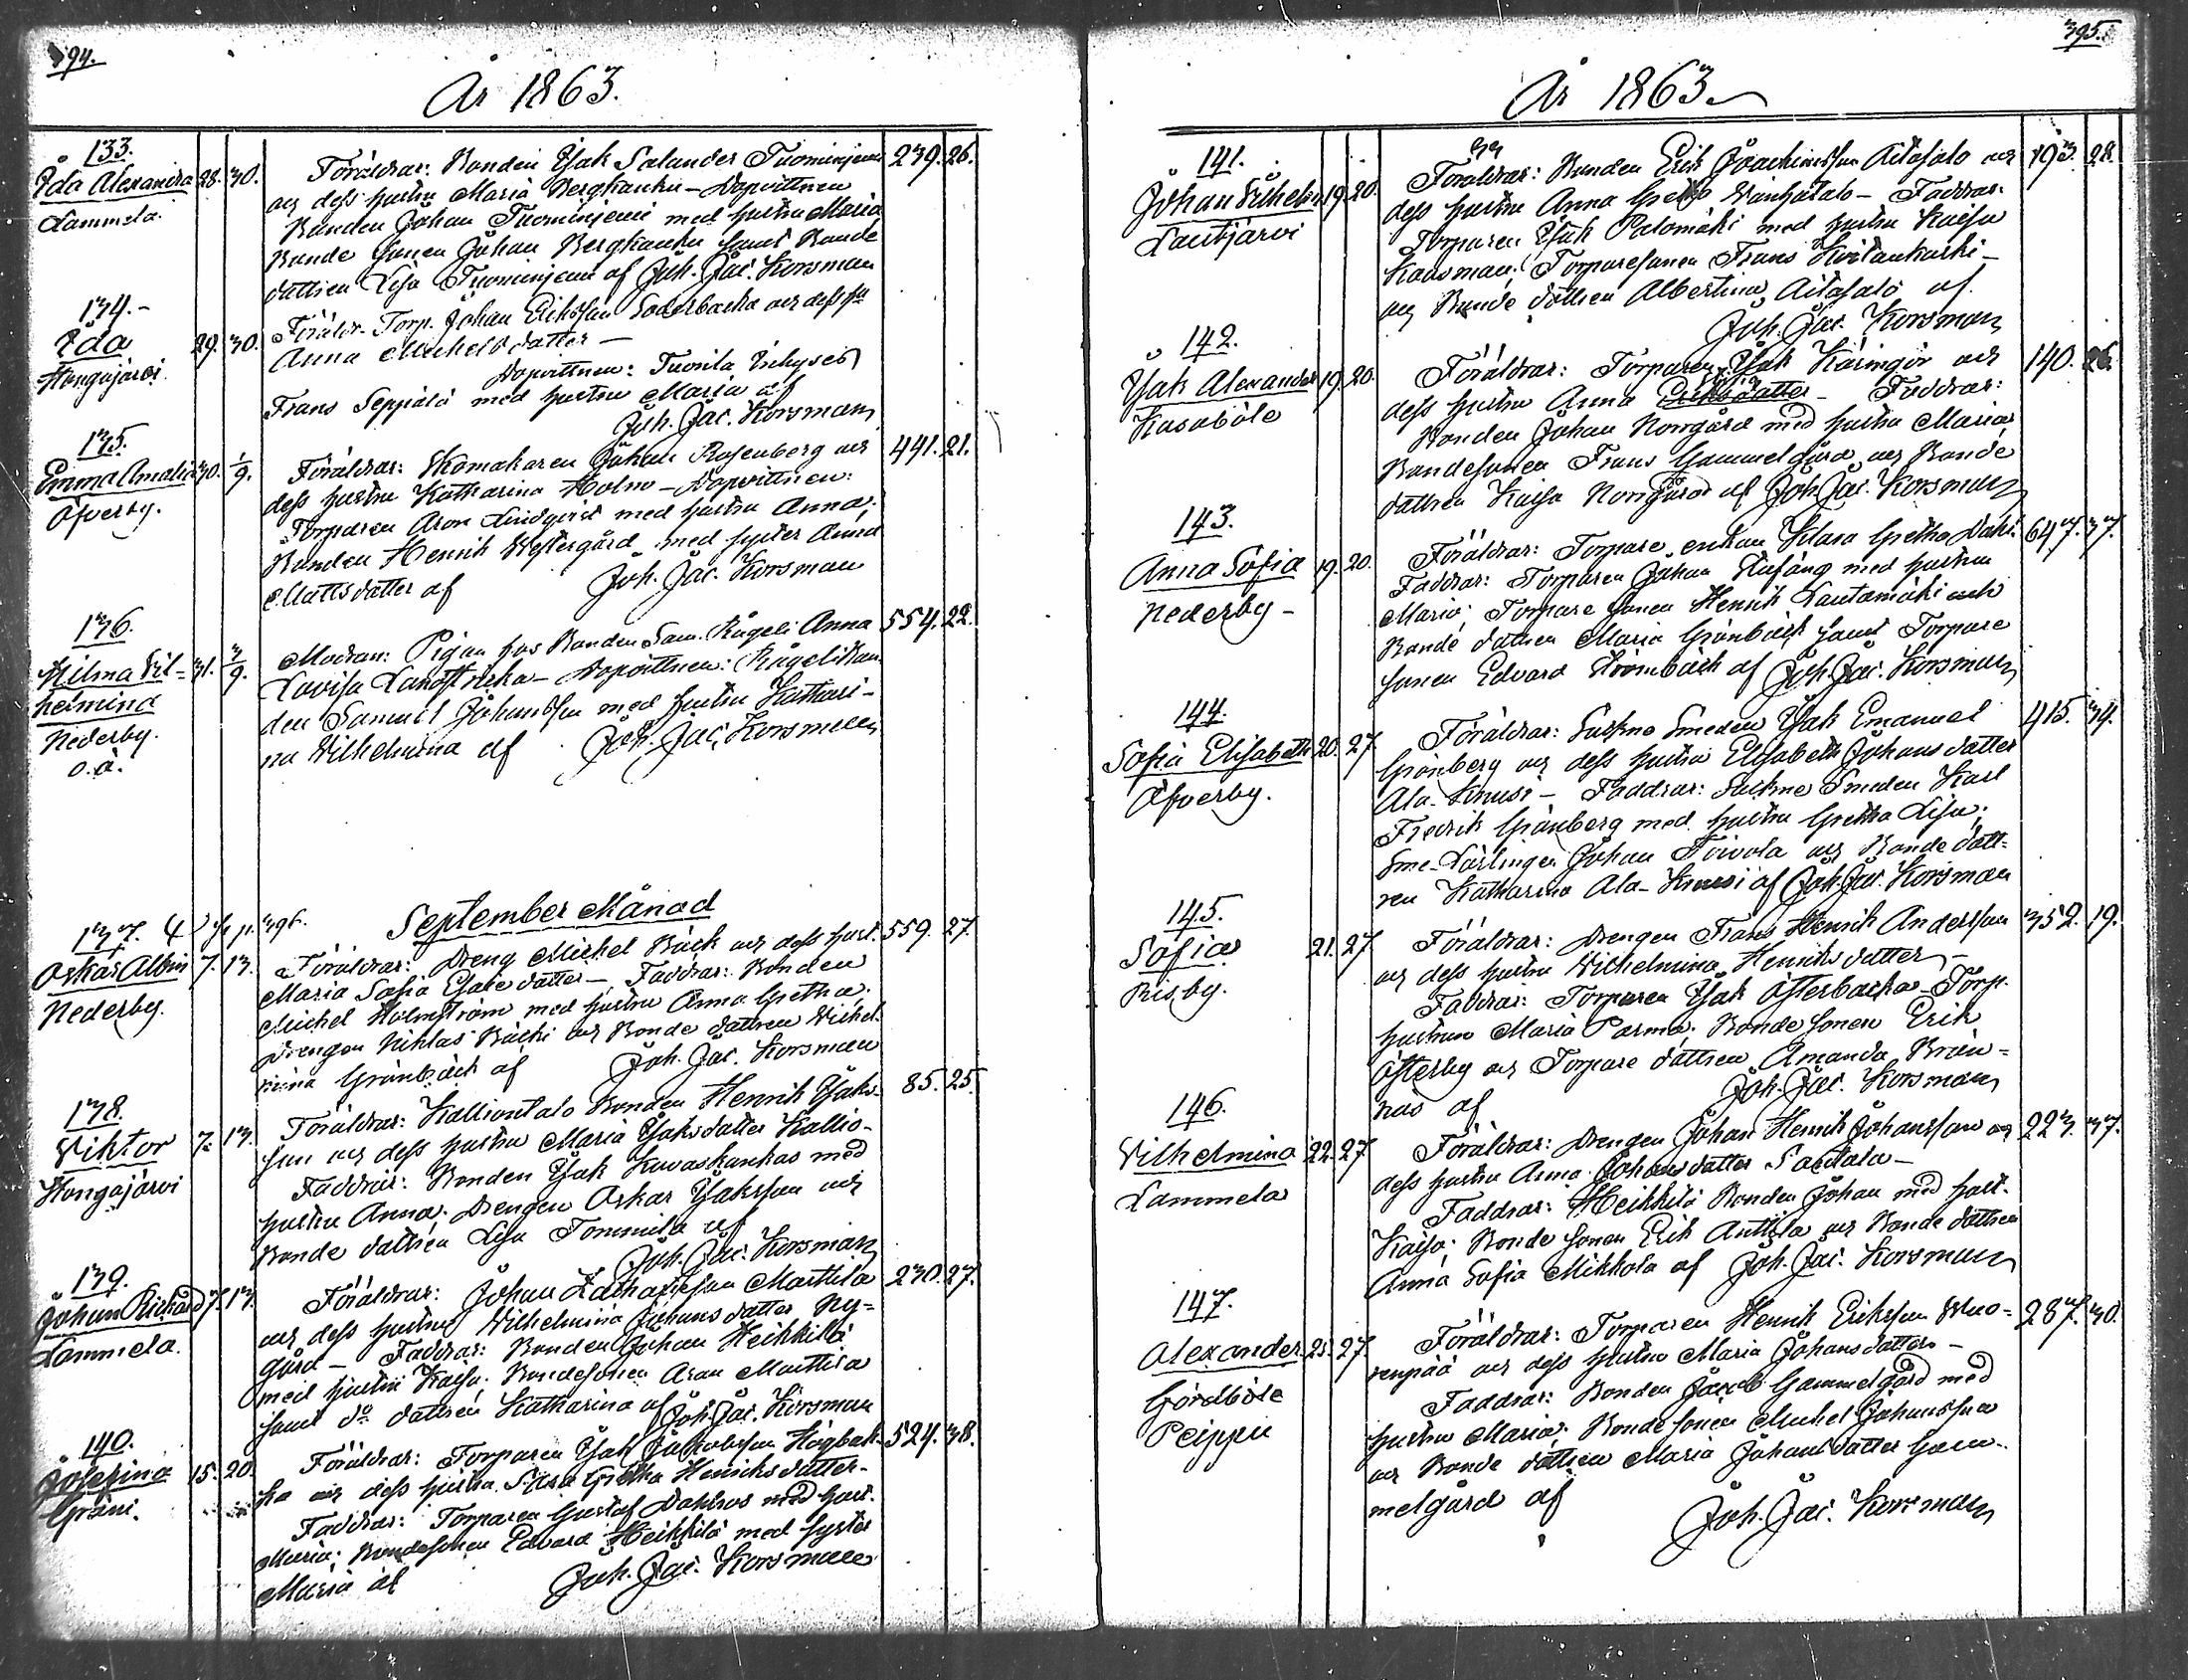 394.
År 1863.
133.
Ida Alexandra 28. 30.
Lammela.
Föräldrar: Bonden Isak Salander Tuominjemi 239. 26.
och dess hustru Maria Bergkanku – Dopvittnen
Bonden Johan Tuominjemi med hustru Maria
Bonde sonen Johan Bergkanku samt Bonde
dottren Lisa Tuominjemi af Joh. Jac. Korsman
134.
Ida 29. 30.
Kongajärvi
Föräldr. Torp. Johan Eriksson Söderbacka och dess hu
Anna Michelsdotter –
Dopvittnen: Tuorila Inhyses
Frans Seppälä med hustru Maria af
Joh. Jac. Korsman
135.
Emma Amalia 30. 1/9.
Öfverby.
Föräldrar: Skomakaren Johan Rosenberg och 441. 21.
dess hustru Katharina Holm – Dopvittnen:
Torparen Aron Lindqvist med hustru Anna;
Bonden Henrik Westergård med syster Anna
Mattsdotter af Joh. Jac. Korsman
136.
Hilma Vil= 31. 3/9.
helmina
Nederby.
o.ä.
Modren: Pigan hos Bonden Sam. Rågeli Anna 554. 22.
Lovisa Landstricka – Dopvittnen: Rågeli Bon
den Samuel Johansson med hustru Kathari-
na Wilhelmina af Joh. Jac. Korsman
September Månad
137.
Oskar Albin 7. 13.
Nederby.
Föräldrar: Dreng Michel Bäck och dess hust. 559. 27.
Maria Sofia Isaksdotter –, Faddrar: Bonden
Michel Holmström med hustru Anna Gretha.
Drengen Niklas Bäck och Bonde dottren Vilhel
mina Grönbäck af Joh. Jac. Korsman
138.
Viktor 7. 13.
Kongajärvi
Föräldrar: Kalliontalo Bonden Henrik Isaks- 85. 25.
son och dess hustru Maria Isaksdotter Kallio-
Faddrar: Bonden Isak Kuvaskankas med
hustru Anna; Drengen Oskar Isaksson och
Bonde dottren Lisa Tommila af
Joh. Jac. Korsman
139.
Johan Richard 7. 13.
Lammela.
Föräldrar: Johan Zachariasson Marttila 230. 27.
och dess hustru Wilhelmina Johansdotter Ny=
gård – Faddrar: Bonden Johan Heikkilä
med hustru Kaisa. Bondesonen Aron Marttila
samt do dottren Katharina af Joh. Jac. Korsman
140.
Josefina 15. 20.
Gräni.
Föräldrar: Torparen Isak Jakobsson Högbak- 524. 38.
ka och dess hustru Sara Gretha Henriksdotter-
Faddrar: Torparen Gustaf Dahlros med hust.
Maria; Bondesonen Edvard Heikkilä med syster
Maria af Joh. Jac. Korsman
395.
År 1863.
141.
Johan Vilhelm 19. 20.
Lautjärvi
Föräldrar: Bonden Erik Joachimsson Aitosalo och 193. 28.
dess hustru Anna Greta Wanhatalo – Faddrar:
Torparen Isak Palomäki med hustru Kaisa
Kausman; Torparesonen Frans Koitankoski –
och Bonde dottren Albertina Aitosalo af
Joh. Jac. Korsman
142.
Isak Alexander 19. 20.
Kasaböle
Föräldrar: Torparen Isak Käringör och 140. 26.
dess hustru Anna Eriksdotter – Faddrar:
Bonden Johan Norrgård med hustru Maria
Bondesonen Frans Gammelgård och Bonde
dottren Kaisa Norrgård af Joh. Jac. Korsman
143.
Anna Sofia 19. 20.
Nederby –
Föräldrar: Torpare enkan Klara Gretha Dahl. 647. 37.
Faddrar: Torparen Johan Nyfäng med hustru
Maria; Torpare sonen Henrik Lautamäki och
Bonde dottren Maria Grönbäck samt Torpare
sonen Edvard Strömbäck af Joh. Jac. Korsman
144.
Sofia Elisabeth 20. 27.
Öfverby.
Föräldrar: Sockne Smeden Isak Emanuel 415. 34.
Grönberg och dess hustru Elisabeth Johansdotter
Ala-Knusi – Faddrar: Sockne Smeden Karl
Fredrik Grönberg med hustru Gretha Lisa;
Sme-Lärlingen Johan Toivola och Bonde dott=
ren Katharina Ala-Knusi af Joh. Jac. Korsman
145.
Sofia 21. 27.
Risby.
Föräldrar: Drengen Frans Henrik Andersson 352. 19.
och dess hustru Wilhelmina Henriksdotter –
Faddrar: Torparen Isak Österbacka – Torp.
hustrun Maria Parma. Bonde sonen Erik
Österby och Torpare dottren Amanda Brän=
näs af Joh. Jac. Korsman
146.
Vilhelmina 22. 27.
Lammela
Föräldrar: Drengen Johan Henrik Johansson och 223. 37.
dess hustru Anna Johansdotter Santala –
Faddrar: Heikkilä Bonden Johan med hust.
Kaisa; Bonde sonen Erik Anttila och Bonde dottren
Anna Sofia Mikkola af Joh. Jac. Korsman
147.
Alexander 25. 27.
Gördböle
Peippu
Föräldrar: Torparen Henrik Eriksson Wuo= 287. 30.
renpää och dess hustru Maria Johansdotter –
Faddrar: Bonden Jacob Gammelgård med
hustru Maria; Bonde sonen Michel Johansson
och Bonde dottren Maria Johansdotter Gam-
melgård af
Joh. Jac. Korsman